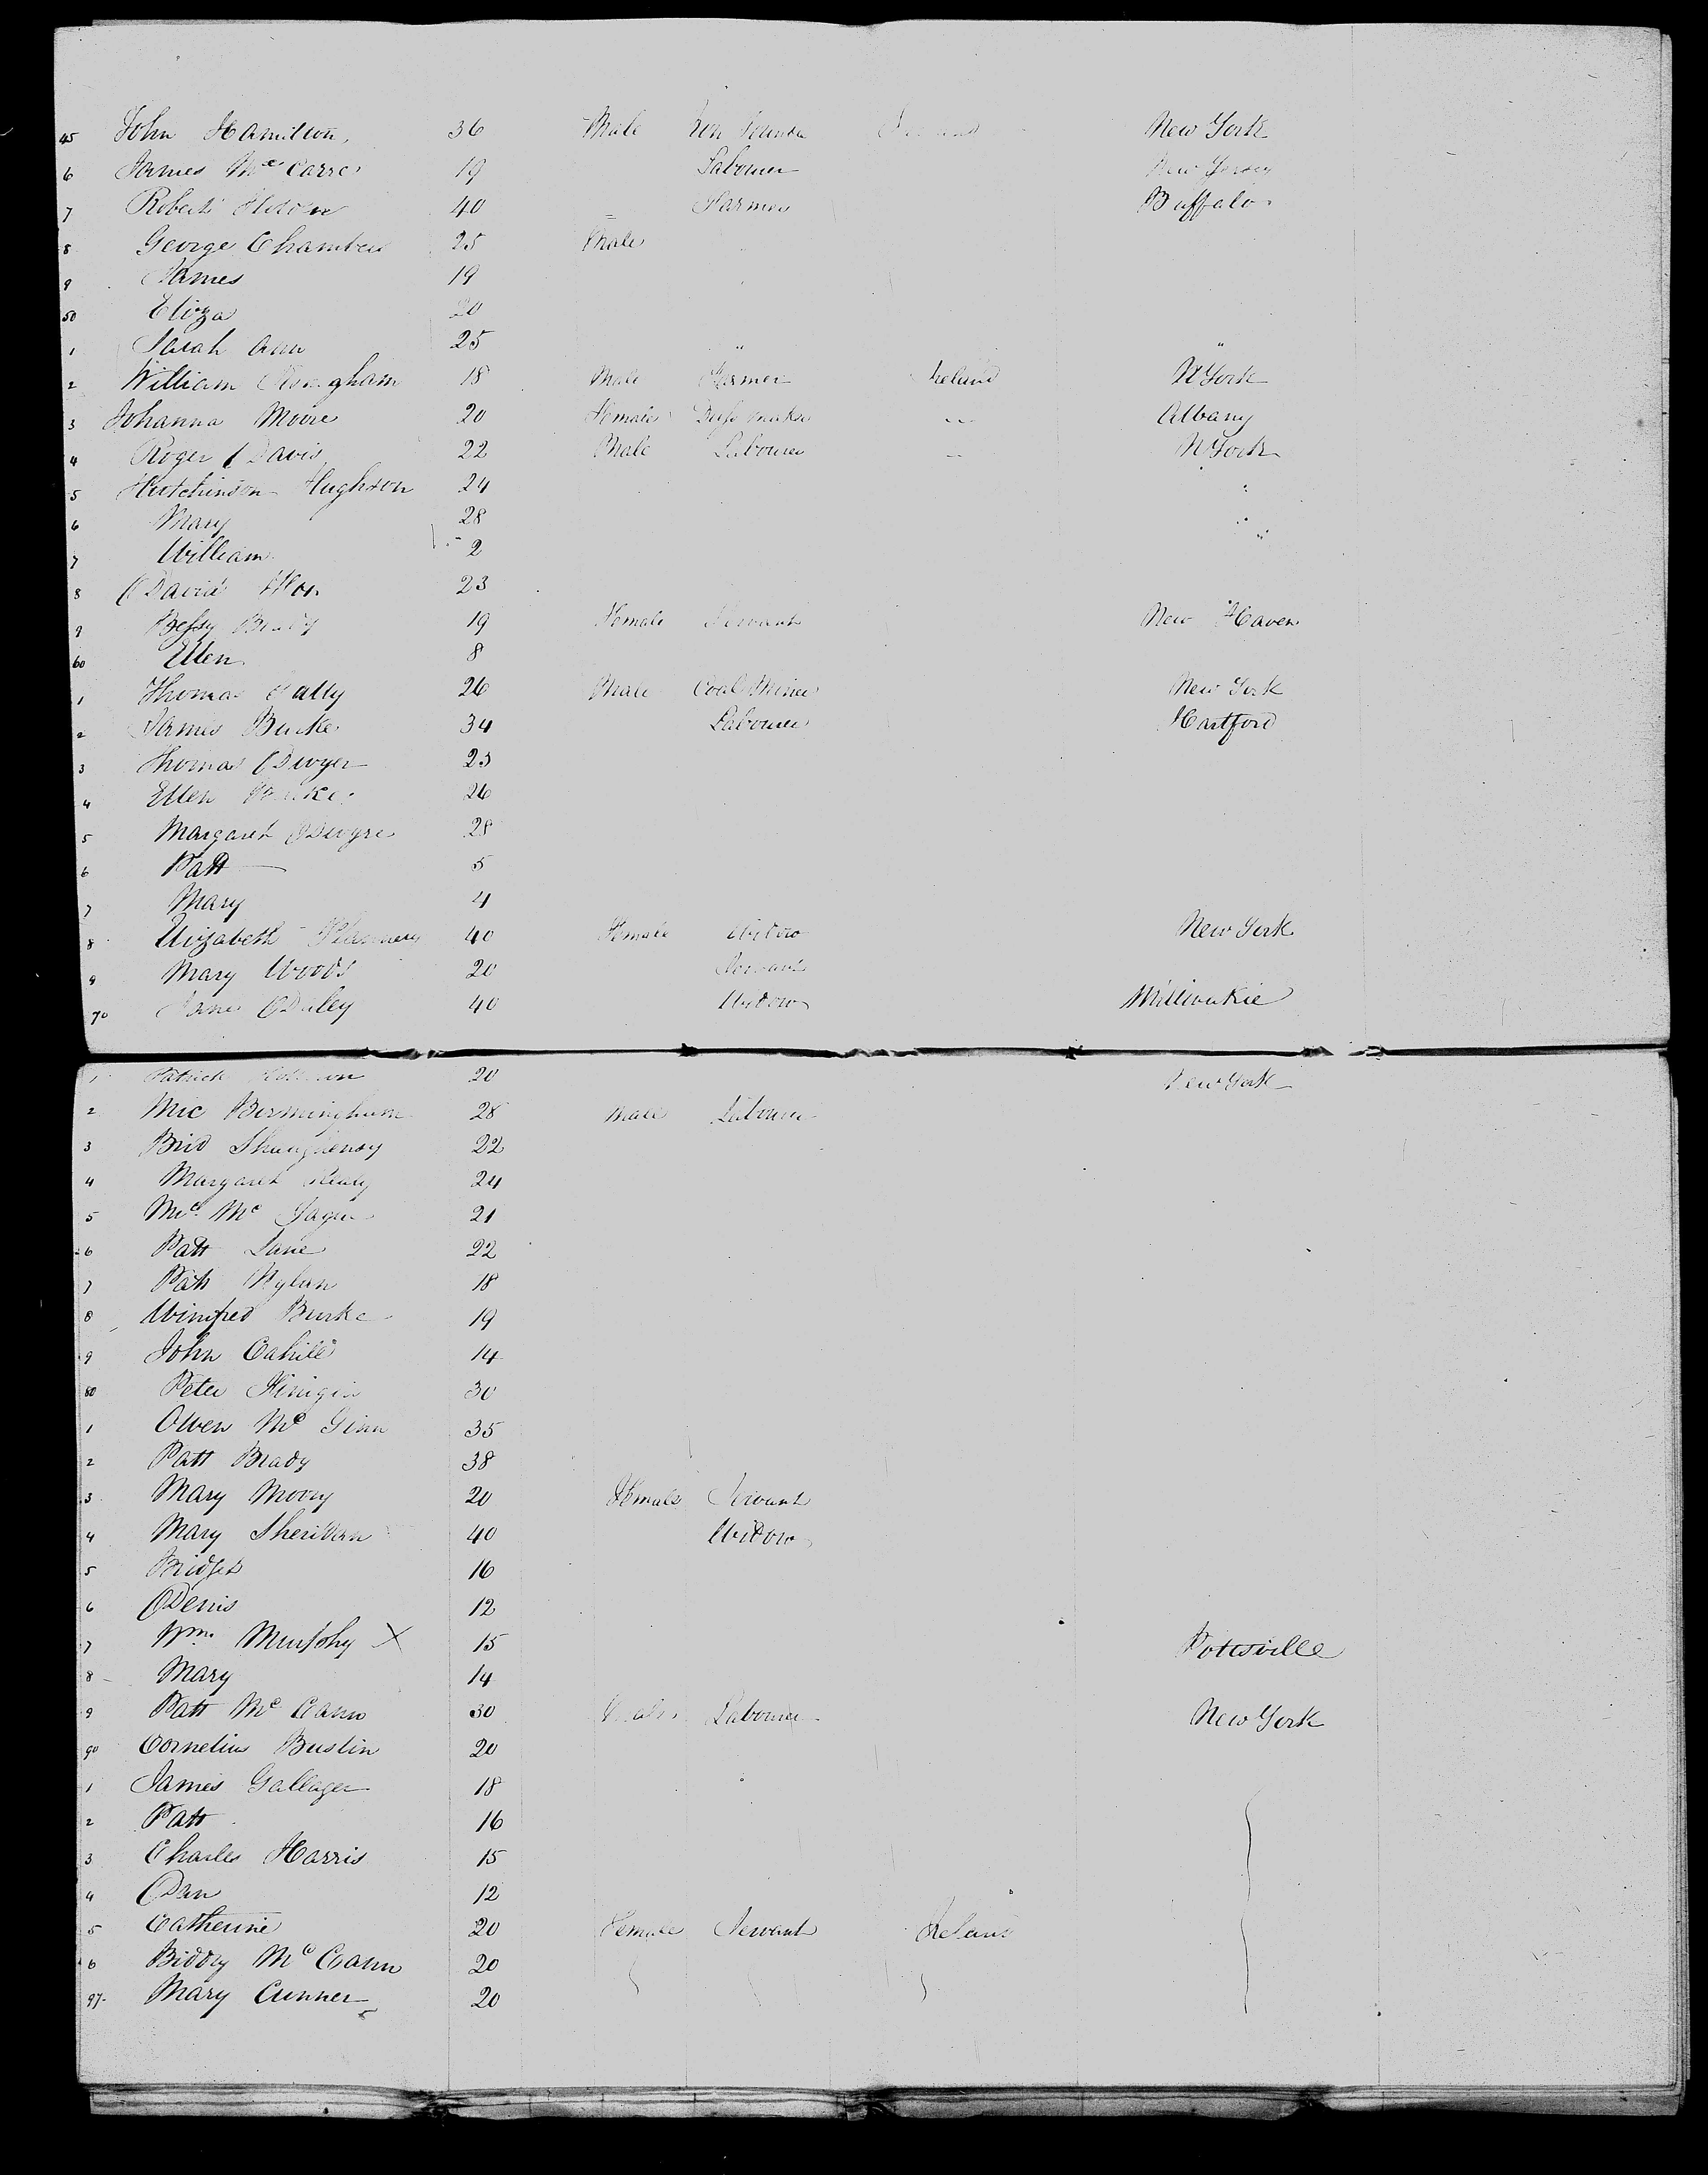 45 John Hamilton 36 Male Iron New York
6 James Mc 19 Labourer New Jersey
7 Robert 40 " Farmer Buffalo
8 George Chambers 25 Male
9 James 19
50 Eliza 20
1 Sarah Ann 25 " "
2 William 18 Male Farmer Ireland N York
3 Johanna Moore 20 Female Dress maker " Albany
4 Roger Davis 22 Male Labourer " N York
5 Hutchinson Hughson 24 "
6 Mary 28 "
7 William 2 "
8 David 23
9 Bessy Brady 19 Female Servant New Haven
60 Ellen 8
1 Thomas 26 Male Coal Miner New York
2 James Burke 34 Labourer Hartford
3 Thomas Dwyer 25
4 Ellen 26
5 Margaret Dwyre 28
6 Patt 5
7 Mary 4
8 Elizabeth 40 Female Widow New York
9 Mary Woods 20 Servant
70 Jane Daley 40 Widow Millwakie
1 Patrick 20 New York
2 Mic Bermingham 28 Male Labourer
3 Brid Shaughensy 22
4 Margaret 24
5 Mc 21
6 Patt Lane 22
7 Patt Nylan 18
8 Winifred Burke 19
9 John Cahill 14
80 Peter 30
1 Owen Mc Ginn 35
2 Patt Brady 38
3 Mary Moory 20 Female Servant
4 Mary Sheridan 40 Widow
5 Bridget 16
6 Denis 12
7 Wm. Murphy X 15 Pottsville
8 Mary 14
9 Patt Mc Cann 30 Male Labourer New York
90 Cornelius Bustin 20
1 James Gallager 18
2 Patt 16
3 Charles Harris 15
4 Dan 12
5 Catherine 20 Female Servant Ireland
6 Biddy Mc Cann 20
97 Mary Cunner 20